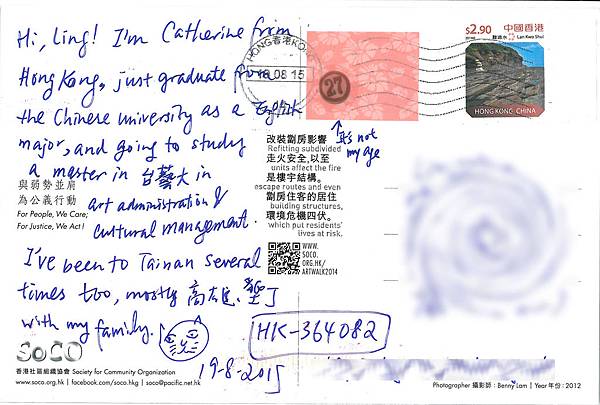 Hi, Ling! I'm Catherine from
Hong Kong, just graduate from
the Chinese university as a English
major, and going to study
a master in 台藝大 in
art administration &
cultural management.
I've been to Tainan several
times too, mostly 高雄、墾丁
with my family.
與弱勢並肩
為公義行動
For People, We Care;
For Justice, We Act!
SoCO
香港社區組織協會 Society for Community Organization
www.soco.org.hk | facebook.com/soco.hkg | soco@pacific.net.hk
HONG KONG 香港
18 08 15
27
↑ It's not
my age
$2.90 中國香港
Lan Kwo Shui
HONG KONG CHINA
改裝劏房影響
Refitting subdivided
走火安全,以至
units affect the fire
是樓宇結構。
escape routes and even
劏房住客的居住
building structures,
環境危機四伏。
which put residents'
lives at risk.
WWW.
SOCO.
ORG.HK/
ARTWALK2014
HK-364082
19-8-2015
Photographer 攝影師 : Benny Lam | Year 年份 : 2012